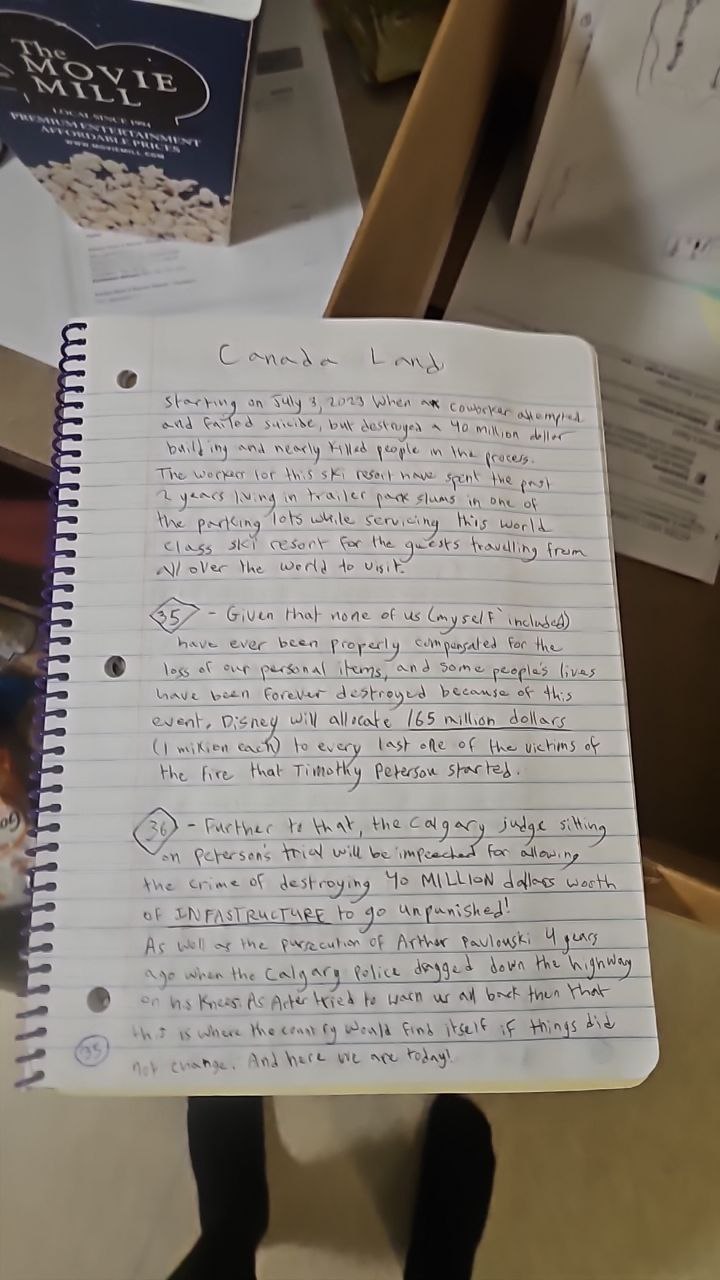 The
MOVIE
MILL
LOCAL SINCE 1994
PREMIUM ENTERTAINMENT
AFFORDABLE PRICES
WWW.MOVIEMILL.COM
Canada Land
starting on July 3, 2023 When a coworker attempted
and failed suicide, but destroyed a 40 million doller
building and nearly killed people in the process.
The workers for this ski resort have spent the past
2 years living in trailer park slums in one of
the parking lots while servicing this world
class ski resort for the guests travelling from
all over the world to visit.
35 - Given that none of us (myself included)
have ever been properly compensated for the
loss of our personal items, and some people's lives
have been forever destroyed because of this
event, Disney will allocate 165 million dollars
(1 million each) to every last one of the victims of
the fire that Timothy Peterson started.
36 - Further to that, the Calgary judge sitting
on Peterson's trial will be impeeched for allowing
the crime of destroying 40 MILLION dollars worth
of INFASTRUCTURE to go unpunished!
As well as the pursecution of Arthur Pavlouski 4 years
ago when the Calgary Police dragged down the highway
on his knees. As Arter tried to warn us all back then that
this is where the country would find itself if things did
not change. And here we are today!
35